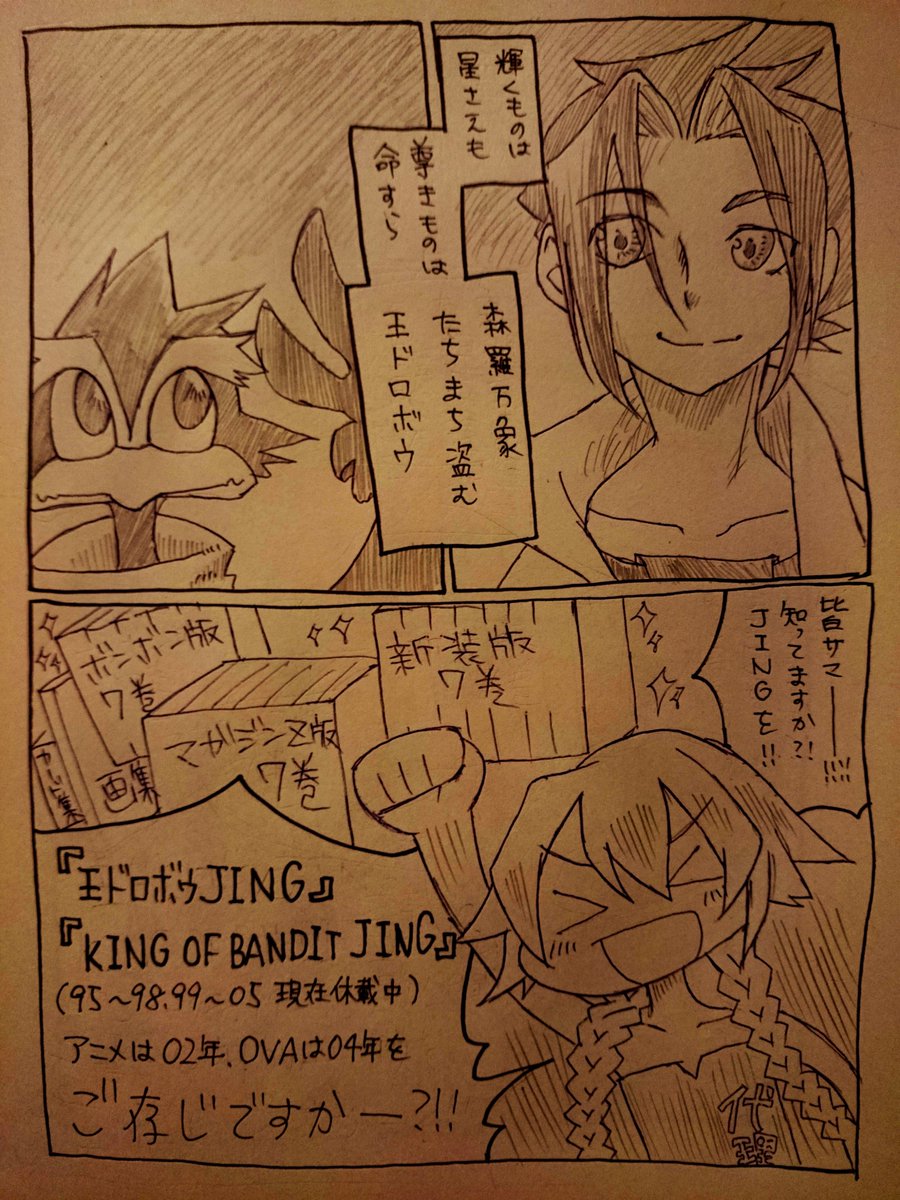 輝くものは
星さえも
尊きものは
命すら
森羅万象
たちまち盗む
王ドロボウ
皆サマーーー!!!
知ってますか?!
JINGを!!
新装版
7巻
ボンボン版
7巻
マガジンZ版
7巻
画集
『王ドロボウJING』
『KING OF BANDIT JING』
(95〜98.99〜05 現在休載中)
アニメは02年、OVAは04年を
ご存じですかー?!!
代理